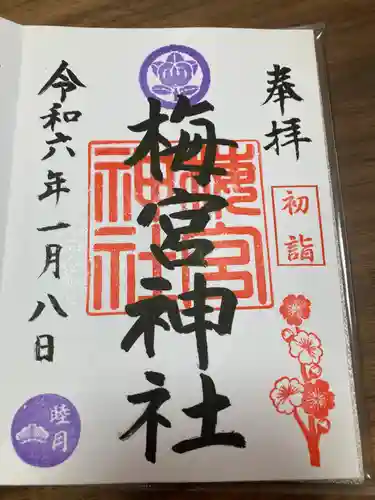 奉拝
初詣
梅宮神社
梅宮
神社
令和六年一月八日
睦月